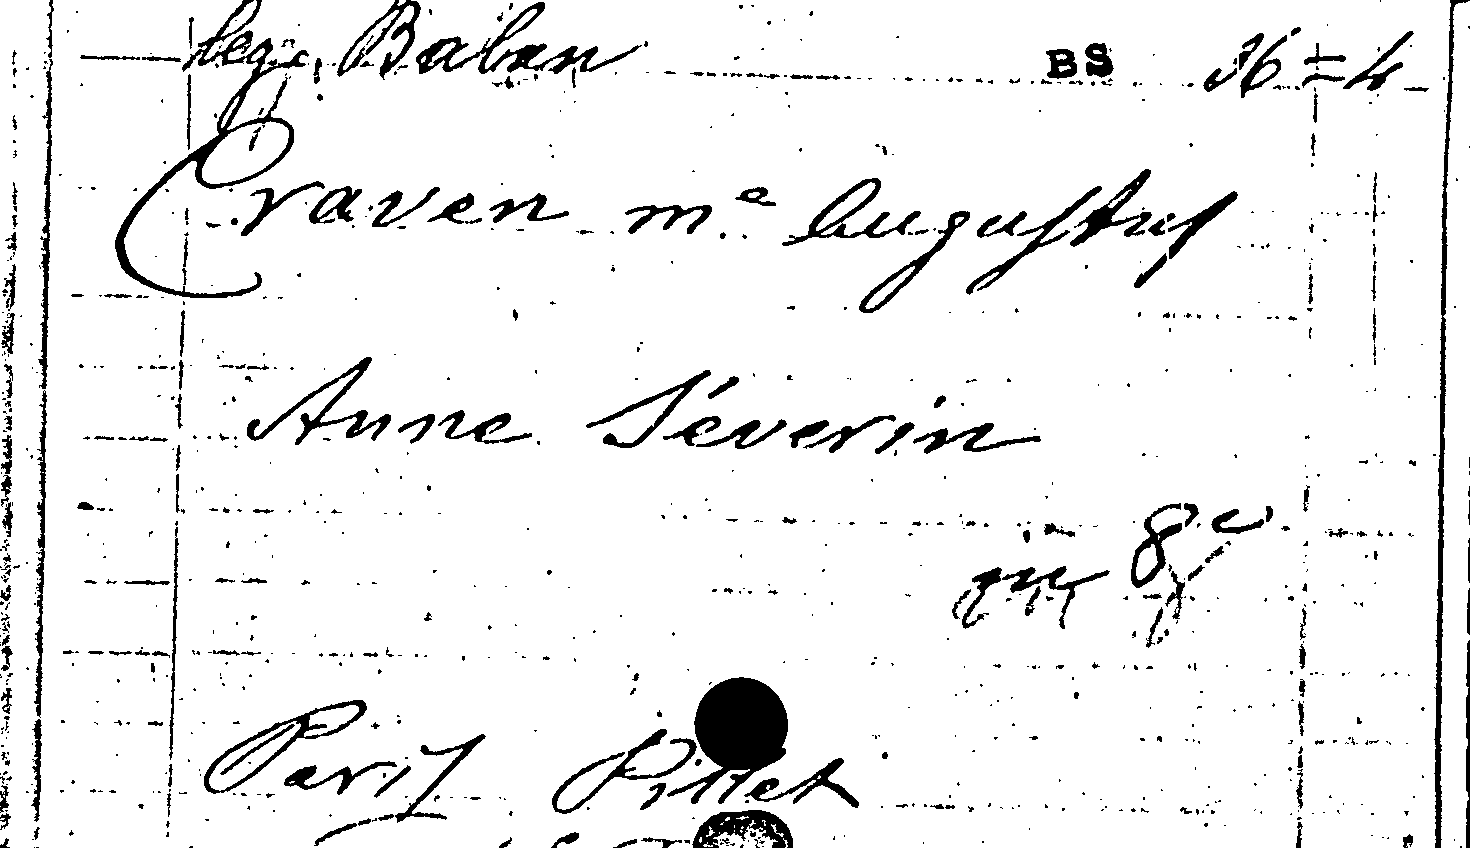 leg. Balan BS 36=4
Craven me Augustus
Anne Séverin
in 8°
Paris Pillet